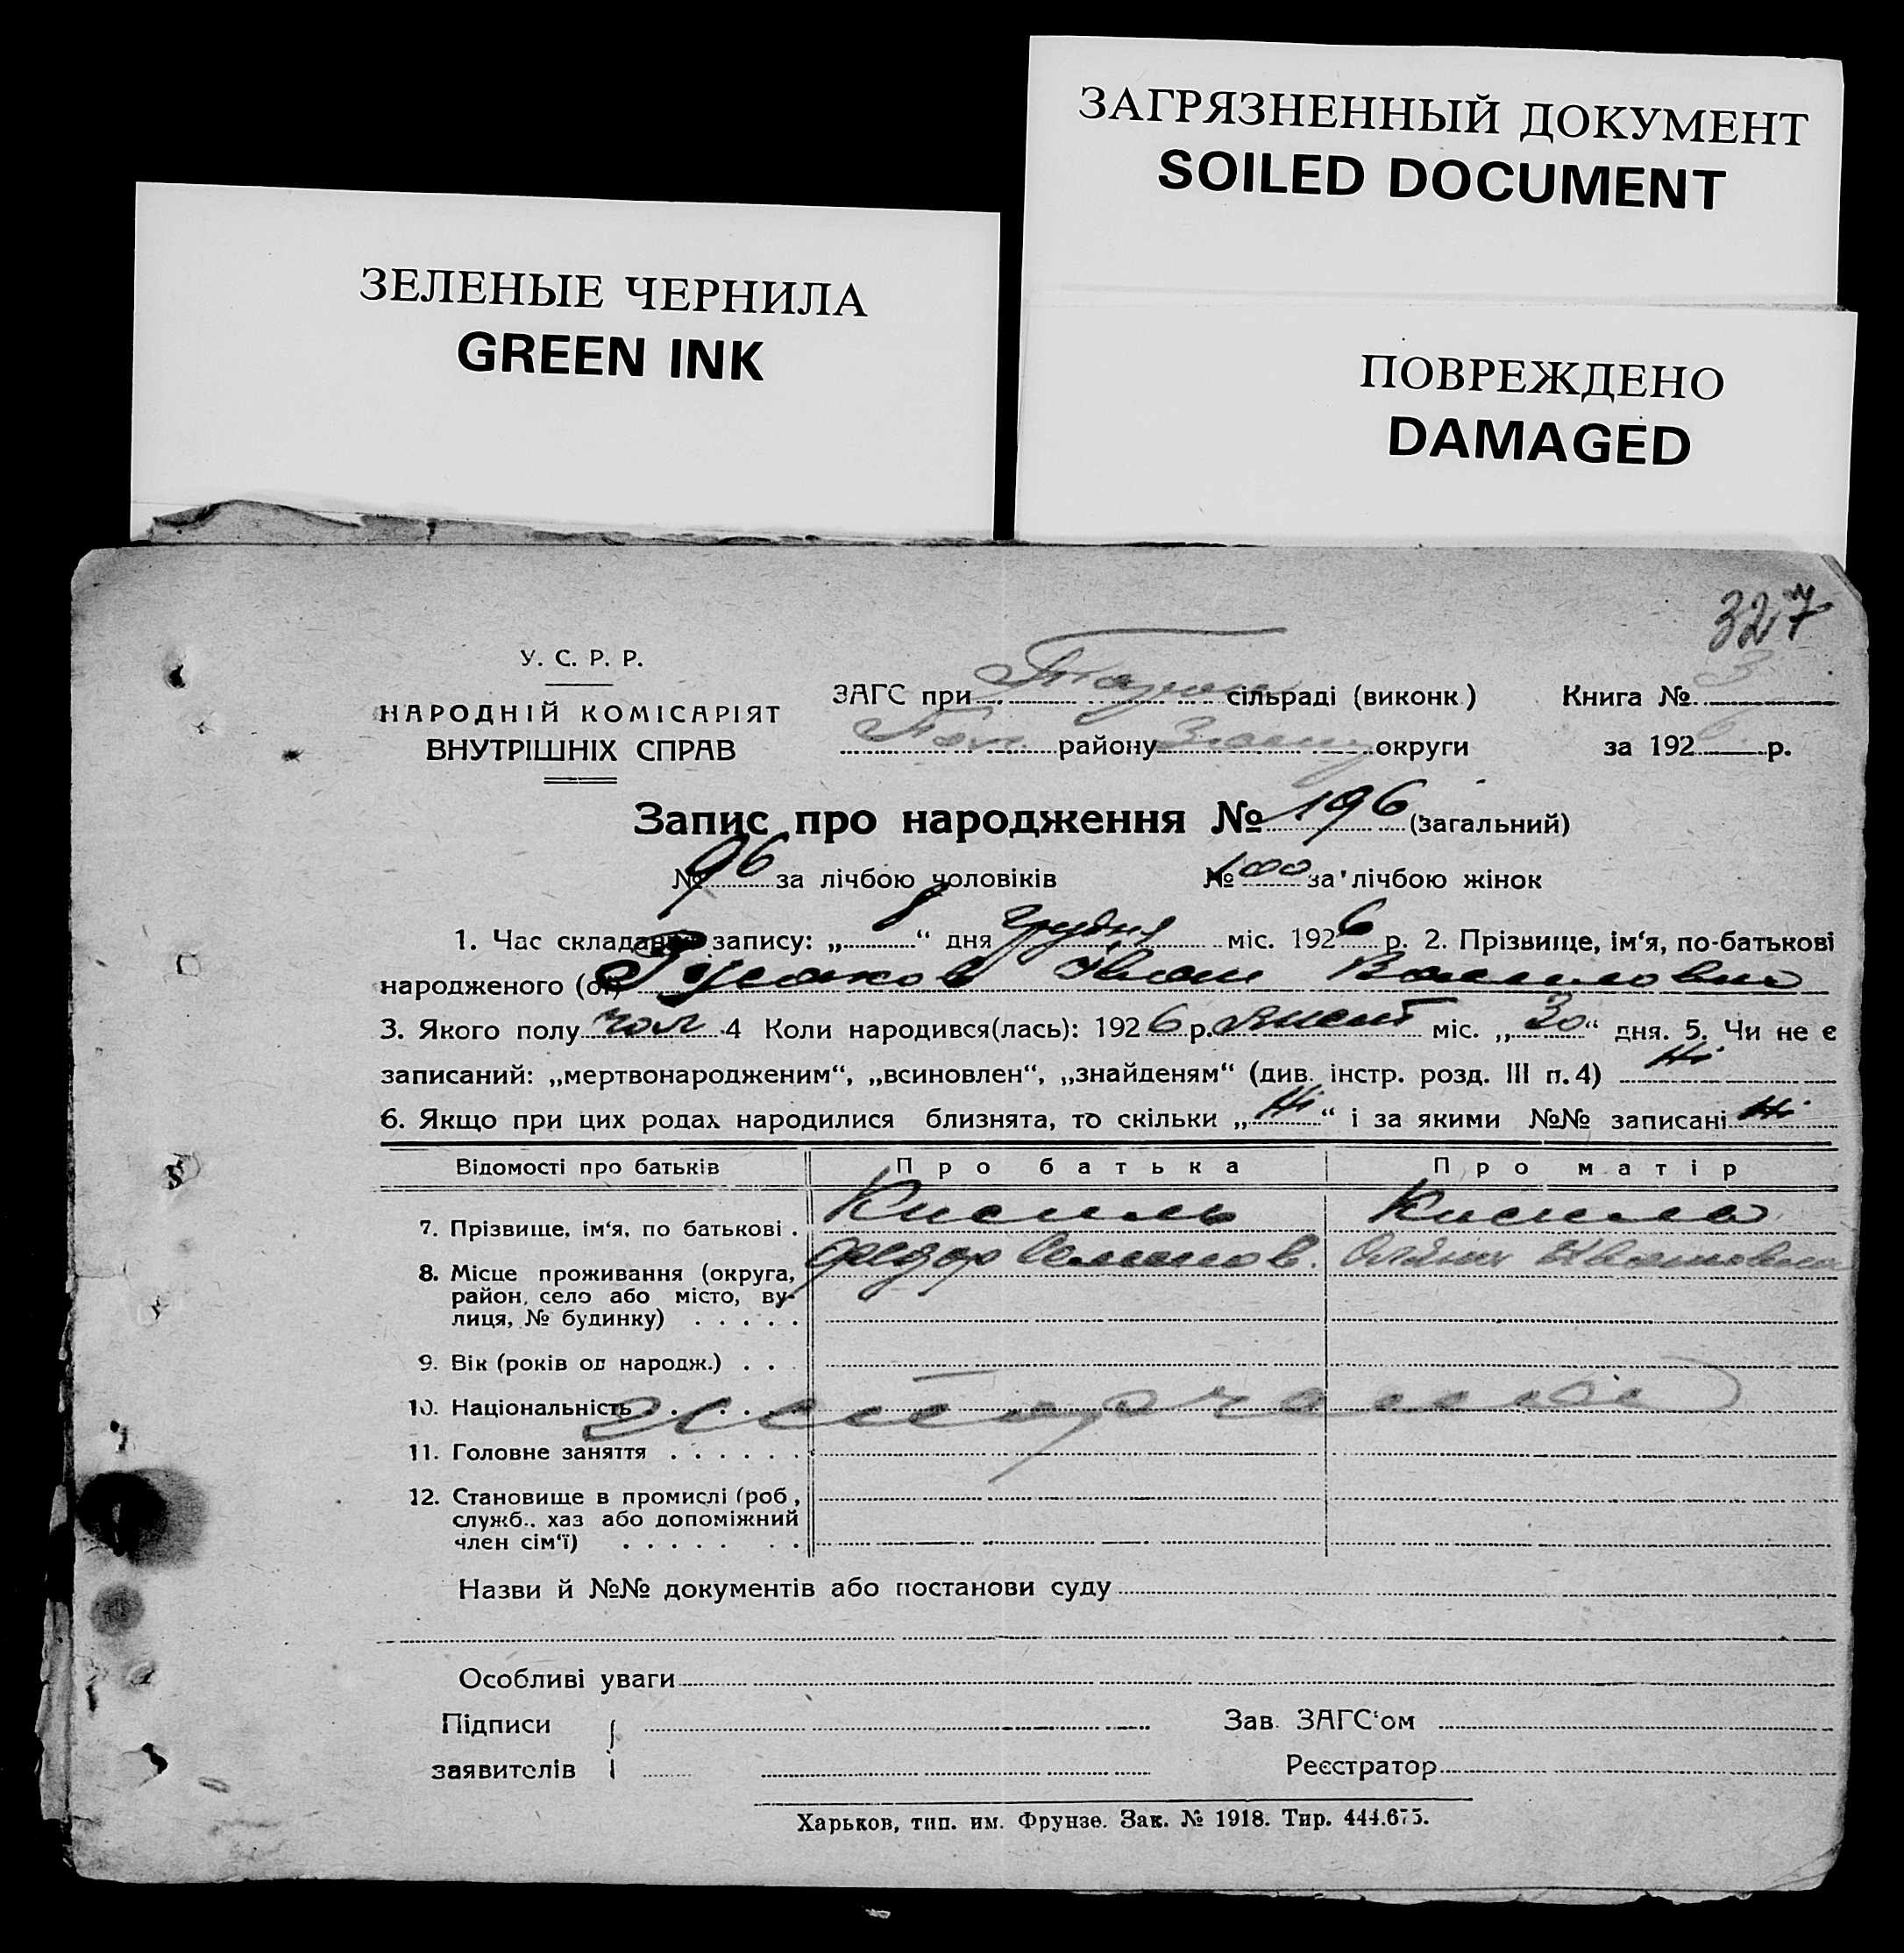 ЗАГРЯЗНЕННЫЙ ДОКУМЕНТ
SOILED DOCUMENT
ЗЕЛЕНЫЕ ЧЕРНИЛА
GREEN INK
ПОВРЕЖДЕНО
DAMAGED
327
У. С. Р. Р.
НАРОДНІЙ КОМІСАРІЯТ
ВНУТРІШНІХ СПРАВ
ЗАГС при сільраді (виконк.) Книга № 3
району округи за 1926 р.
Запис про народження № 196 (загальний)
№ 96 за лічбою чоловіків № 100 за лічбою жінок
1. Час складання запису: „8“ дня грудня міс. 1926 р. 2. Прізвище, ім‘я, по-батькові
народженого (ої) Іван
3. Якого полу чол 4 Коли народився(лась): 1926 р. міс. „30“ дня. 5. Чи не є
записаний: „мертвонародженим“, „всиновлен“, „знайденям“ (див. інстр. розд. III п. 4) Ні
6. Якщо при цих родах народилися близнята, то скільки „Ні“ і за якими №№ записані Ні
Відомості про батьків Про батька Про матір
7. Прізвище, ім‘я, по батькові . Кисиль
8. Місце проживання (округа,
район, село або місто, ву-
лиця, № будинку) . . . . .
9. Вік (років од народж.) . . .
10. Національність . . . . .
11. Головне заняття . . . . . .
12. Становище в промислі (роб.,
служб., хаз або допоміжний
член сім‘ї) . . . . . . .
Назви й №№ документів або постанови суду
Особливі уваги
Підписи Зав. ЗАГС‘ом
заявителів Реєстратор
Харьков, тип. им. Фрунзе. Зак. № 1918. Тир. 444.675.